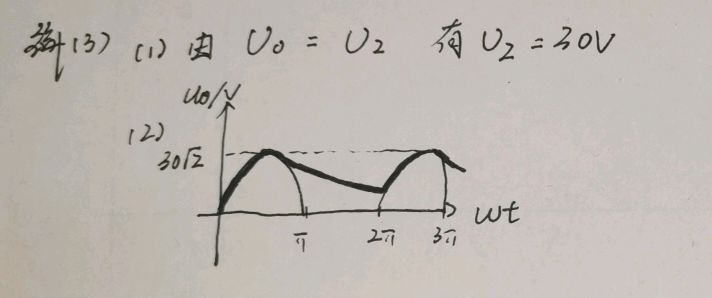 解(3) (1) 由 U₀ = U₂ 有 U₂ = 30V
u₀/V
(2)
30√2
π 2π 3π ωt